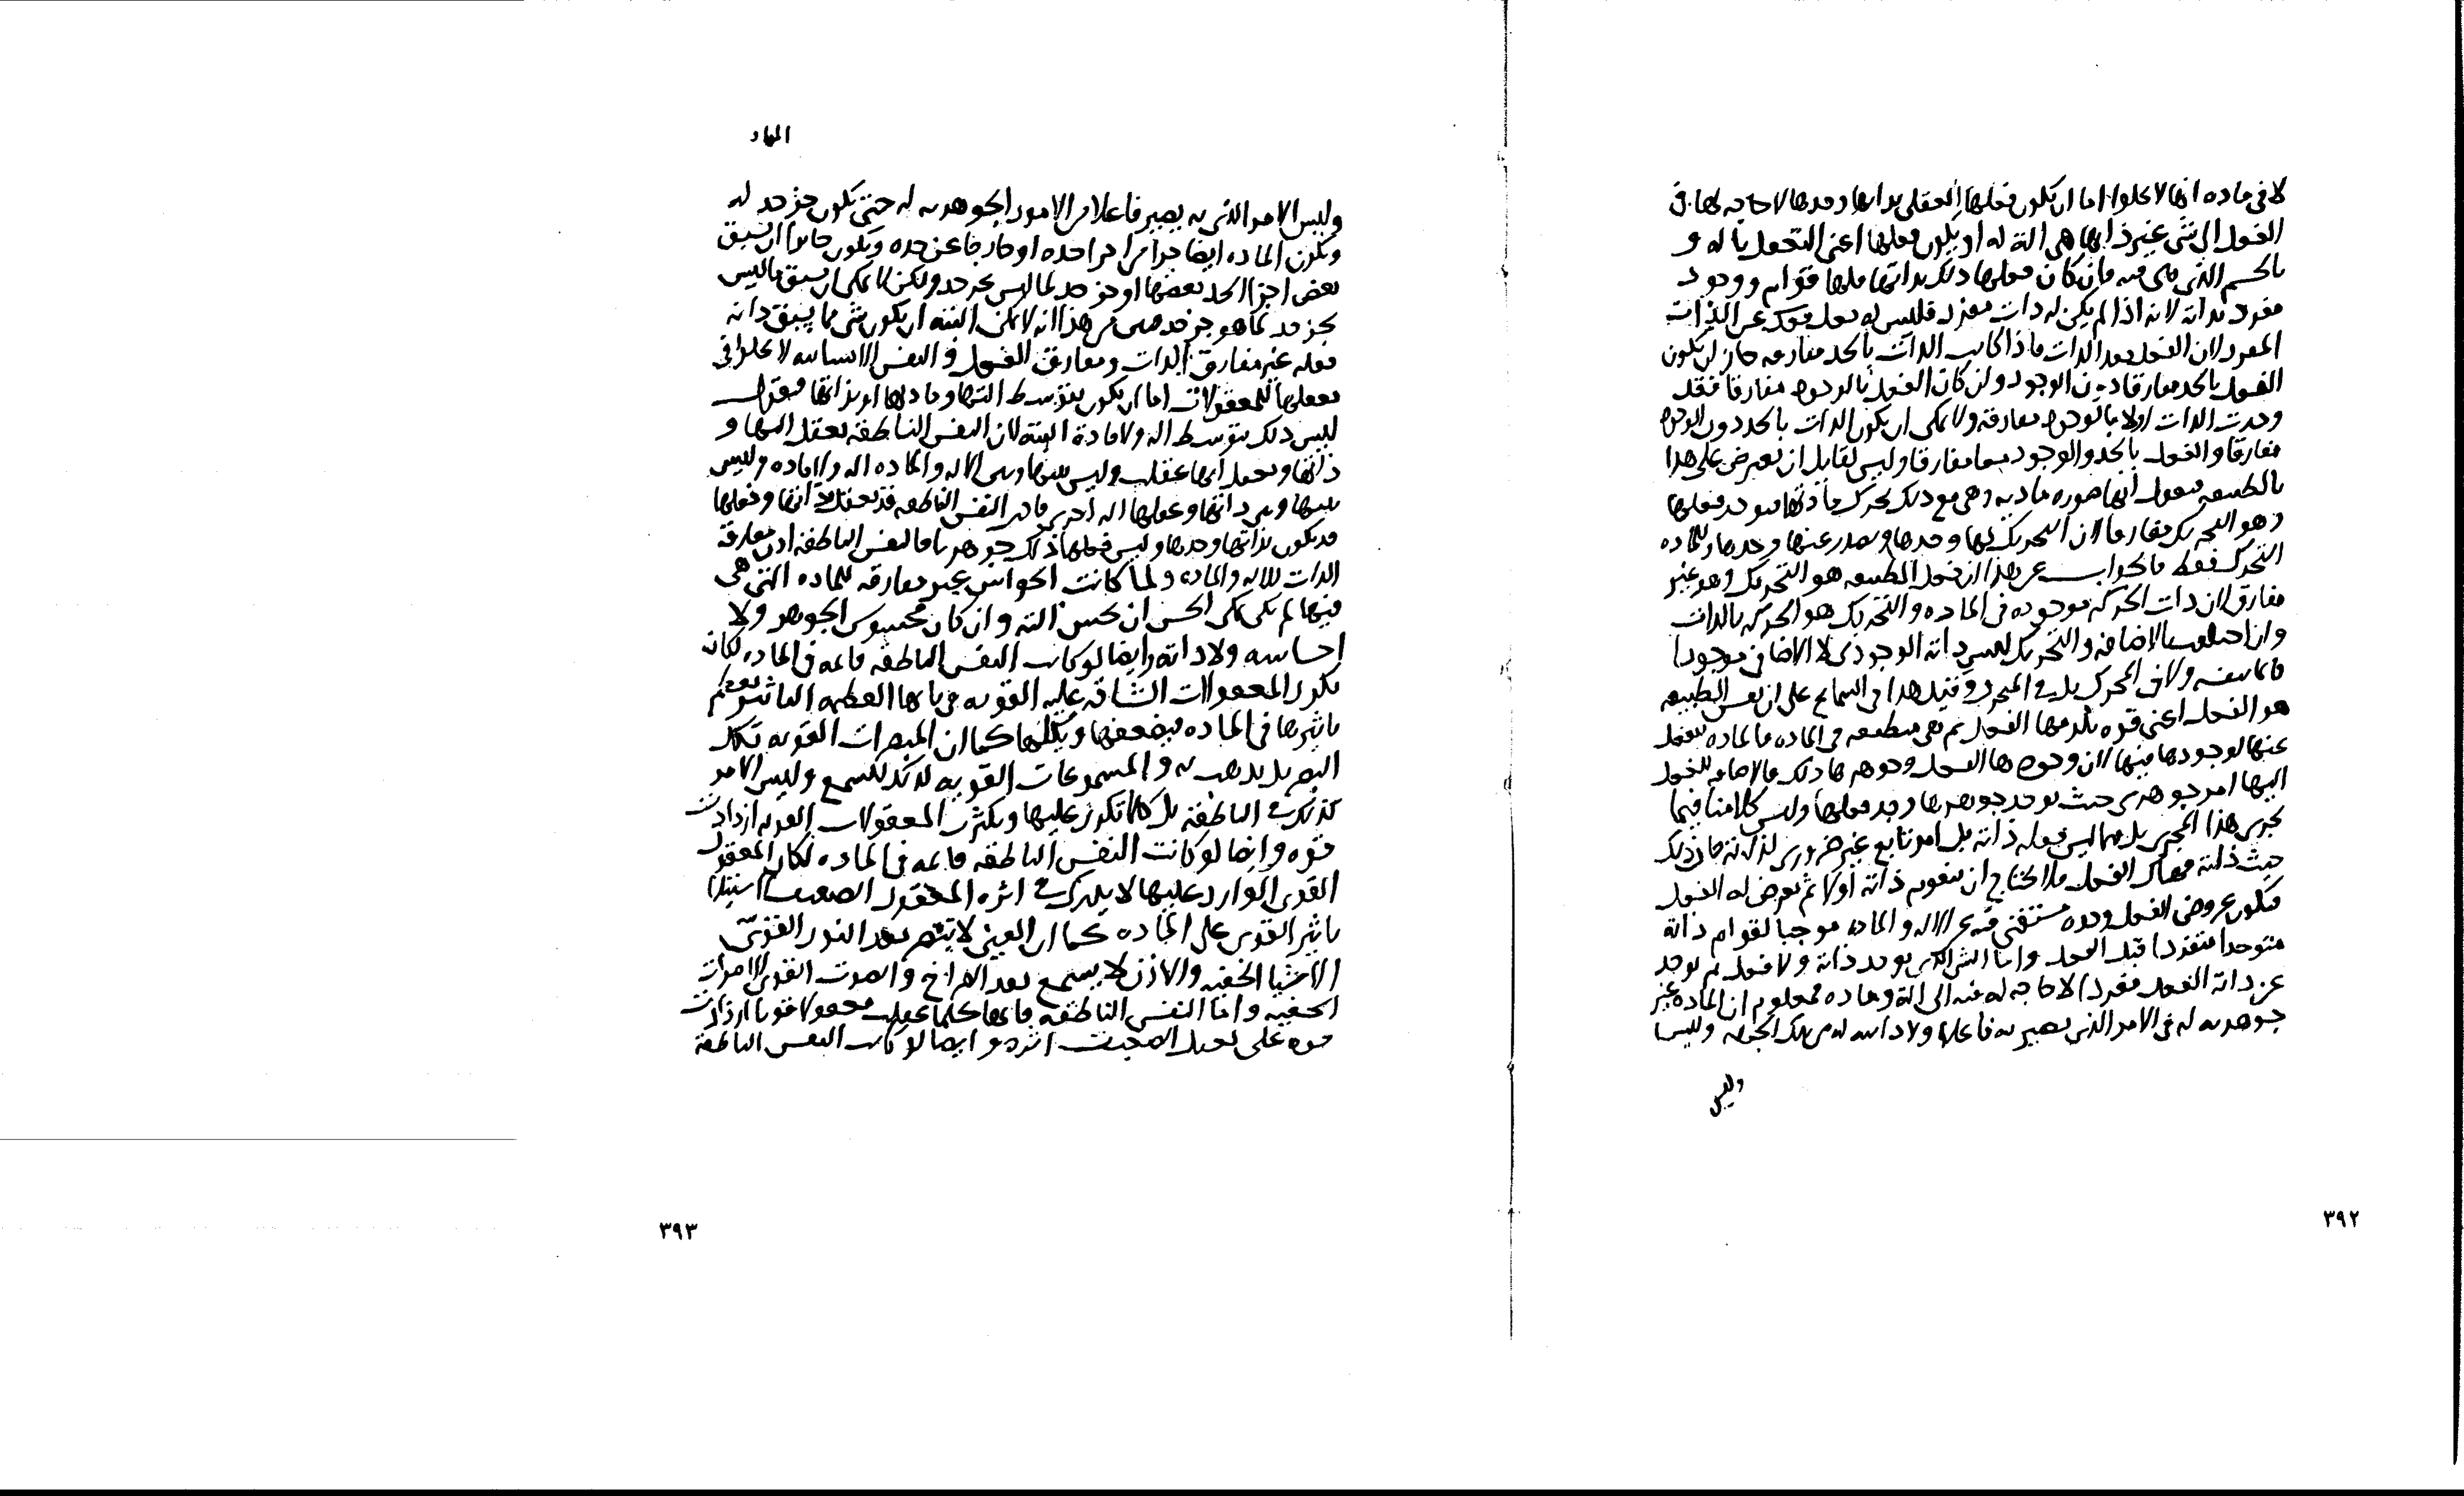 لا في ماده انها لا يخلوا اما ان يكون فعلها العقلي بذاتها وحدها لا حاجه لها في
الفعل الى شي غير ذاتها هي الة له او يكون فعلها اعني التعقل باله و
بالجسم الذي هي فيه فان كان فعلها ذلك بذاتها فلها قوام ووجود
مفرد بذاته لانه اذا لم يكن له ذات مفرد فليس له فعل مفرد عن الذات
المفرد لان الفعل بعد الذات فاذا كانت الذات بالحد مفارقه جاز ان يكون
الفعل بالحد مفارقا دون الوجود وان كان الفعل بالوجود مفارقا فقد
وجدت الذات اولا بالوجود مفارقه ولا يمكن ان يكون الذات بالحد دون الوجود
مفارقا والفعل بالحد والوجود معا مفارقا وليس لقايل ان يعرض على هذا
بالطبيعه فيقول انها صوره ماديه وهي مع ذلك يحرك مادتها فيوجد فعلها
وهو التحريك مفارقا لان التحريك لها وحدها ويصدر عنها وحدها وللماده
التحرك فقط فالجواب عن هذا ان فعل الطبيعه هو التحريك وهو غير
مفارق لان ذات الحركه موجوده في الماده والتحريك هو الحركه بالذات
وان اختلف بالاضافه والتحريك ليس ذاته الوجودي لا الاضافي موجودا
قايما بنفسه ولا في المحرك بل في المتحرك وقيل هذا في السماع على ان نفس الطبيعه
هو الفعل اعني قوه يلزمها الفعل ثم هي منطبعه في الماده فالماده تنفعل
عنها لوجودها فيها لان وجودها الفعل وجوهرها ذلك فالاضافه للفعل
اليها امر جوهري حيث يوجد جوهرها وجد فعلها وليس كلامنا فيما
يجري هذا المجرى بل فيما ليس فعله ذاته بل امر تابع غير ضروري لذاته فان ذلك
حيث ذاته فهناك الفعل فلا يحتاج ان يتقوم ذاته اولا ثم يعرض له الفعل
فيكون عروض الفعل وحده مستغنى فيه عن الاله والماده موجبا لقوام ذاته
متوحدا متفردا قبل الفعل واما الشي الذي يوجد ذاته ولا فعل ثم يوجد
عن ذاته الفعل مفردا لا حاجه له فيه الى الة وماده فمعلوم ان الماده غير
جوهريه له في الامر الذي يصير به فاعلا ولا ذاتيه له من تلك الجهه وليس
وليس
٣٩٢
الماد
وليس الامر الذي به يصير فاعلا من الامور الجوهريه له حتى يكون جزء حد له
ويكون الماده ايضا جزا من اجزا حده او خارجا عن حده ويكون جايزا ان يسبق
بعض اجزا الحد بعضها او جزء حد لما ليس بجزء حد ولكن لا يمكن ان يسبق ما ليس
بجزء حد لما هو جزء حد فبين من هذا انه لا يمكن البته ان يكون شي مما يسبق ذاته
فعله غير مفارق الذات ومفارق الفعل والنفس الانسانيه لا يخلوا في
تعقلها للمعقولات اما ان يكون بتوسط التها ومادتها او بذاتها فنقول
ليس ذلك بتوسط اله ولا مادة البته لان النفس الناطقه تعقل التها و
ذاتها وتعقل انها عقلت وليس بينها وبين الاله والماده اله ولا ماده وليس
بينها وبين ذاتها وعقلها اله اخرى فاذن النفس الناطقه قد تعقل بذاتها وفعلها
قد يكون بذاتها وحدها وليس فعلها ذلك جوهريا فالنفس الناطقه اذن مفارقة
الذات للاله والماده ولما كانت الحواس غير مفارقه للماده التي هي
فيها لم يكن يمكن الحس ان يحس التة وان كان محسوس الجوهر ولا
احساسه ولا ذاته وايضا لو كانت النفس الناطقه قايمه في الماده لكان
تكرر المعقولات الشاقه عليه القويه في بابها العظيمه التاثير يعظم
تاثيرها في الماده فيضعفها ويكلها كما ان المبصرات القويه تكل
البصر بل يذهب به والمسموعات القويه كذلك للسمع وليس الامر
كذلك في الناطقة بل كلما تكرر عليها ويكثرت المعقولات القويه ازدادت
قوه وايضا لو كانت النفس الناطقه قايمه في الماده لكان المعقول
القوي الوارد عليها لا يدرك في اثره المعقول الضعيف لاستيلا
تاثير القوي على الماده كما ان العين لا يبصر بعد النور القوي
الاشيا الخفيه والاذن لا يسمع بعد الصراخ والصوت القوي الاصوات
الخفيه واما النفس الناطقه فانها كلما عقلت معقولا قويا ازدادت
قوه على تعقل الضعيف اثره وايضا لو كانت النفس الناطقة
٣٩٣